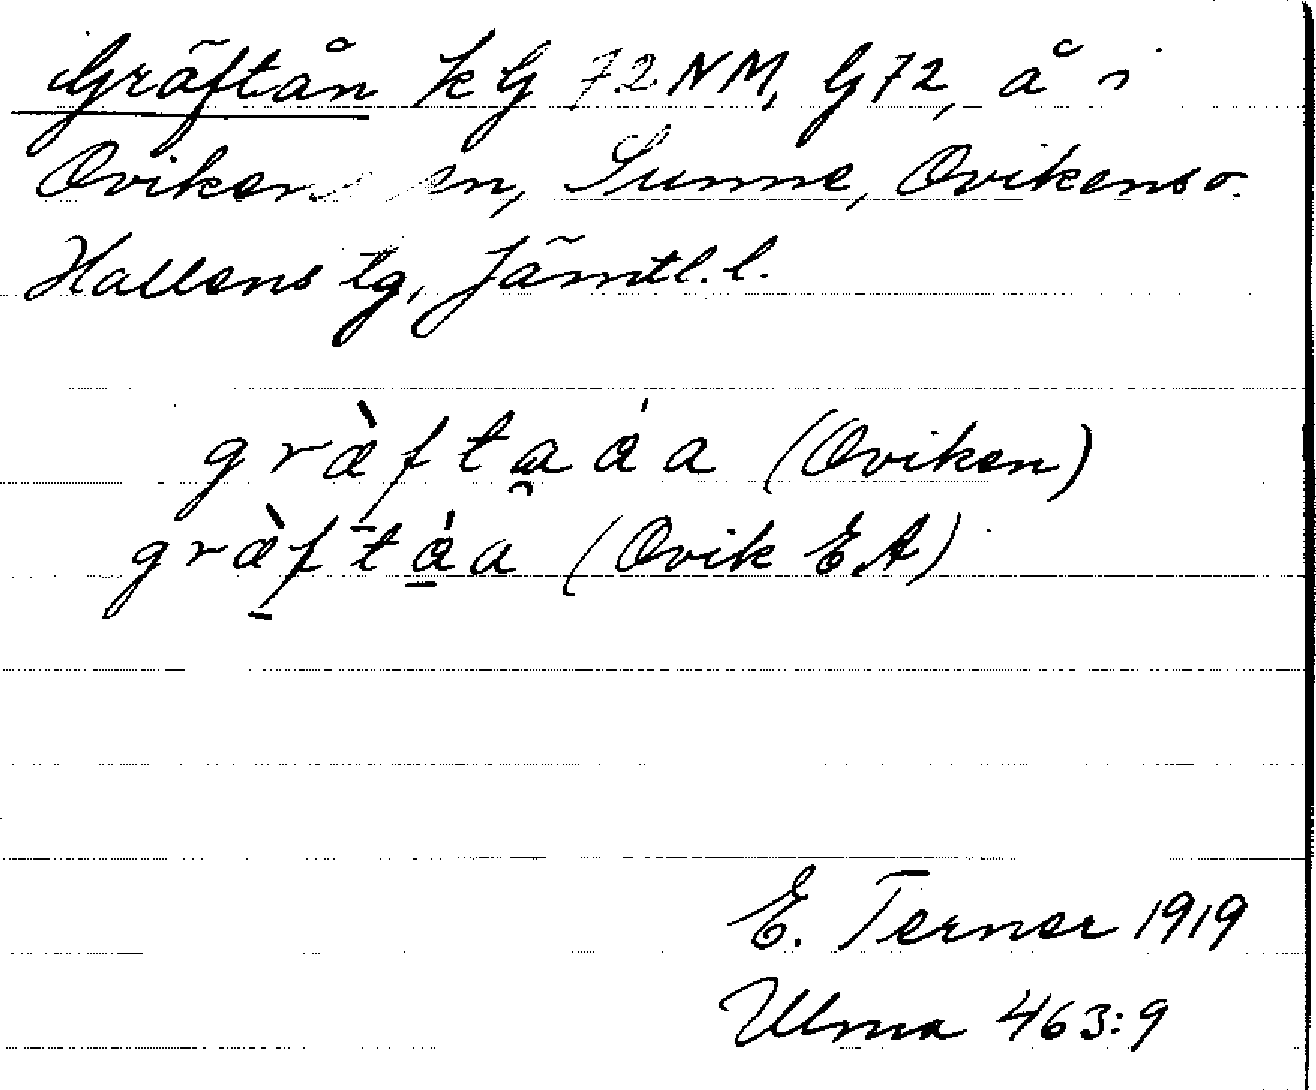 Gräftån kG 72 NM, G72, å i
Oviken sn, Sunne, Oviken o.
Hallens tg, Jämtl. l.
græ̀ftaáa (Oviken)
græ̀ftáa (Ovik EA)
E. Terner 1919
Ulma 463:9